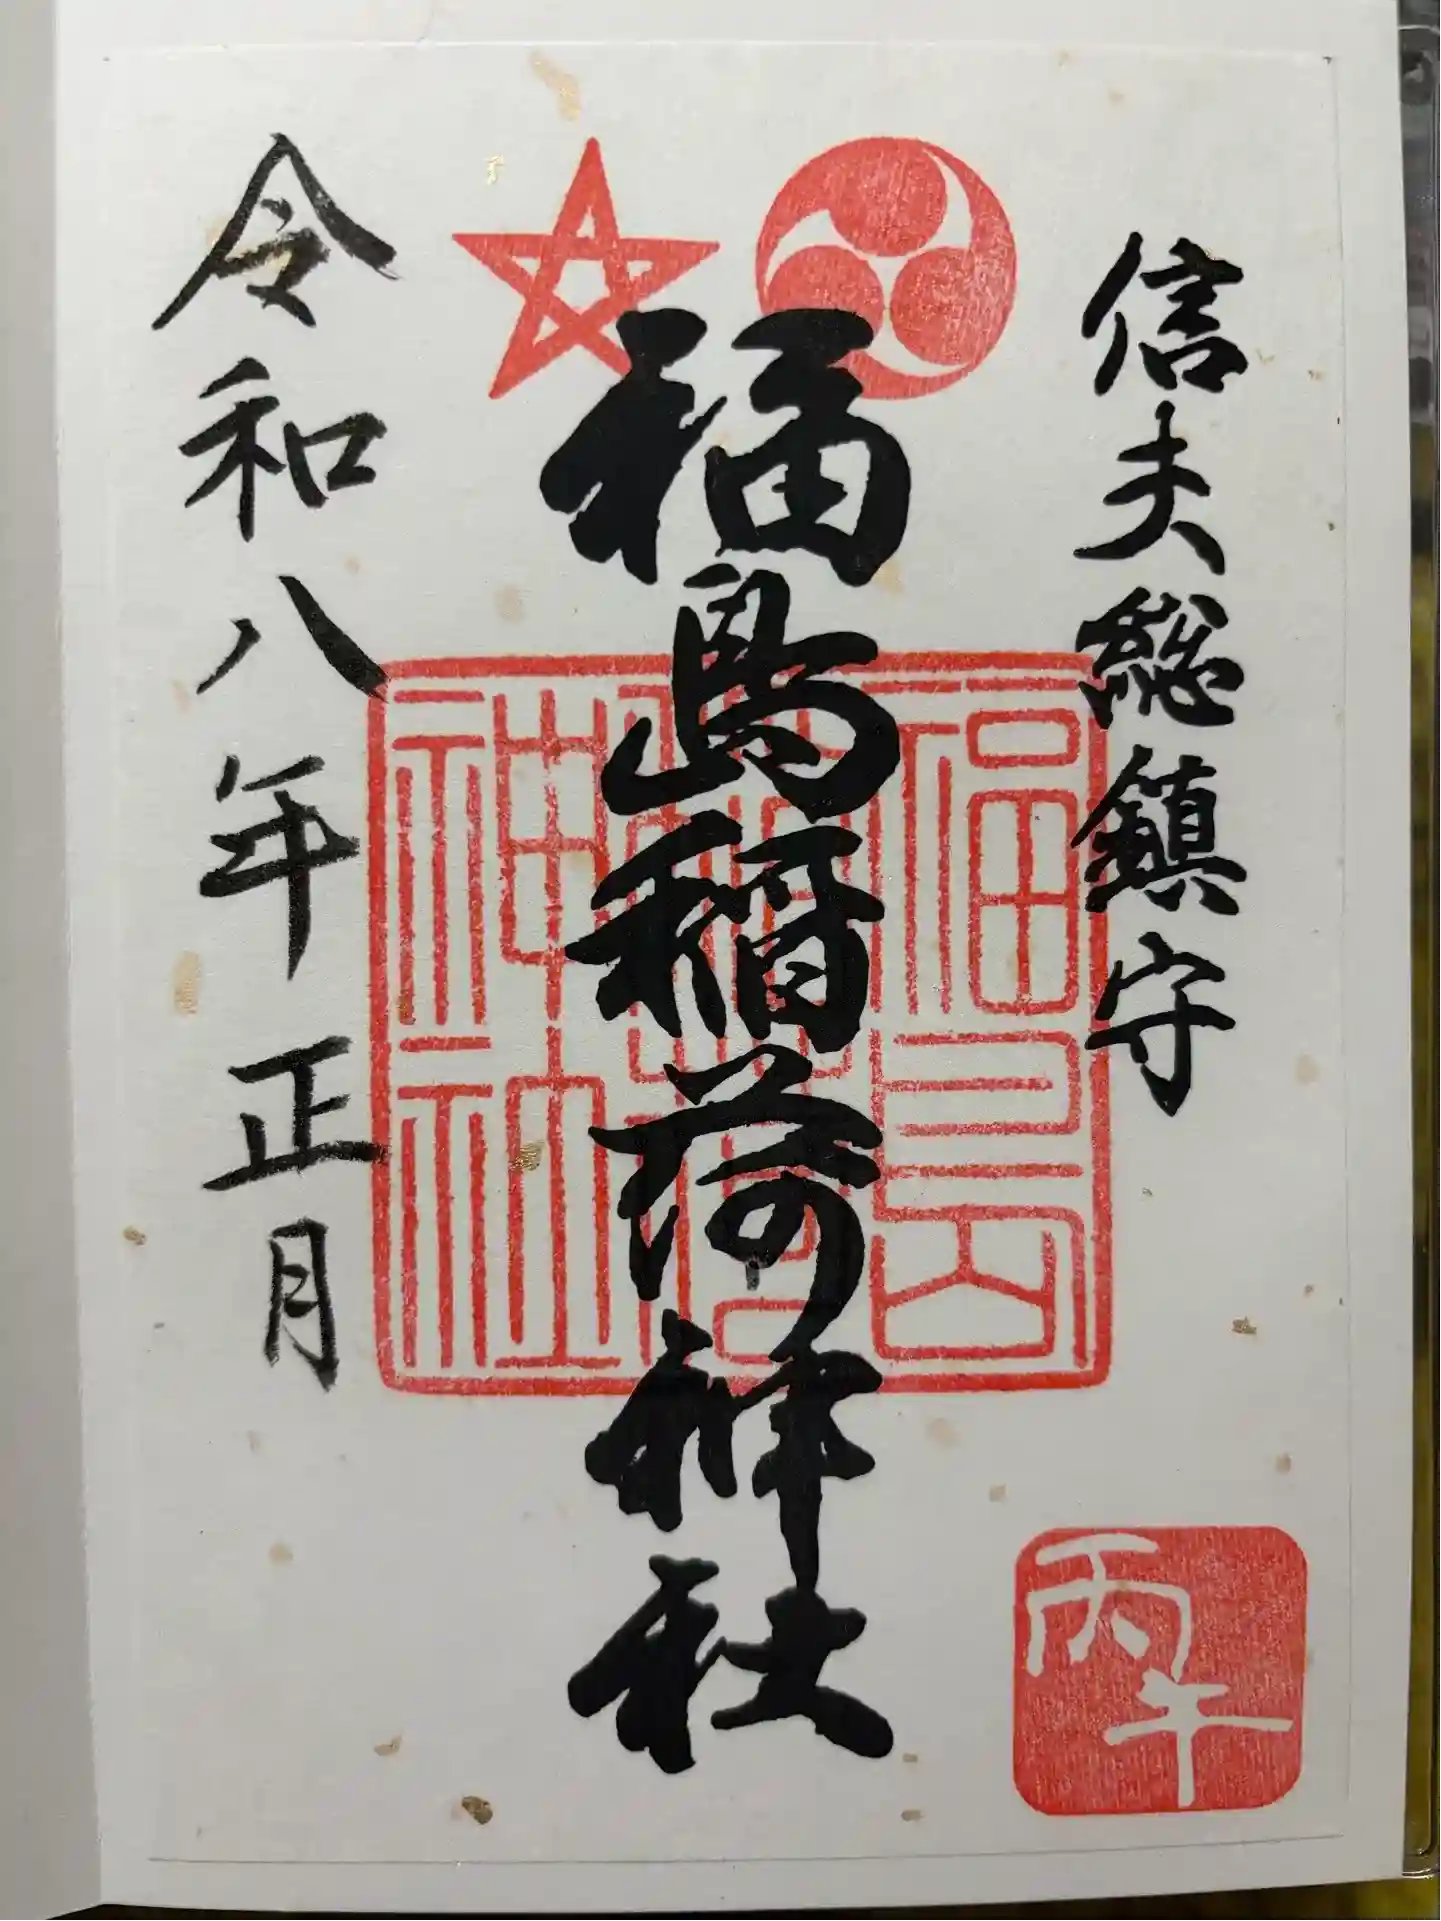 信夫総鎮守
福島稲荷神社
令和八年正月
福島
稲荷
神社
丙午